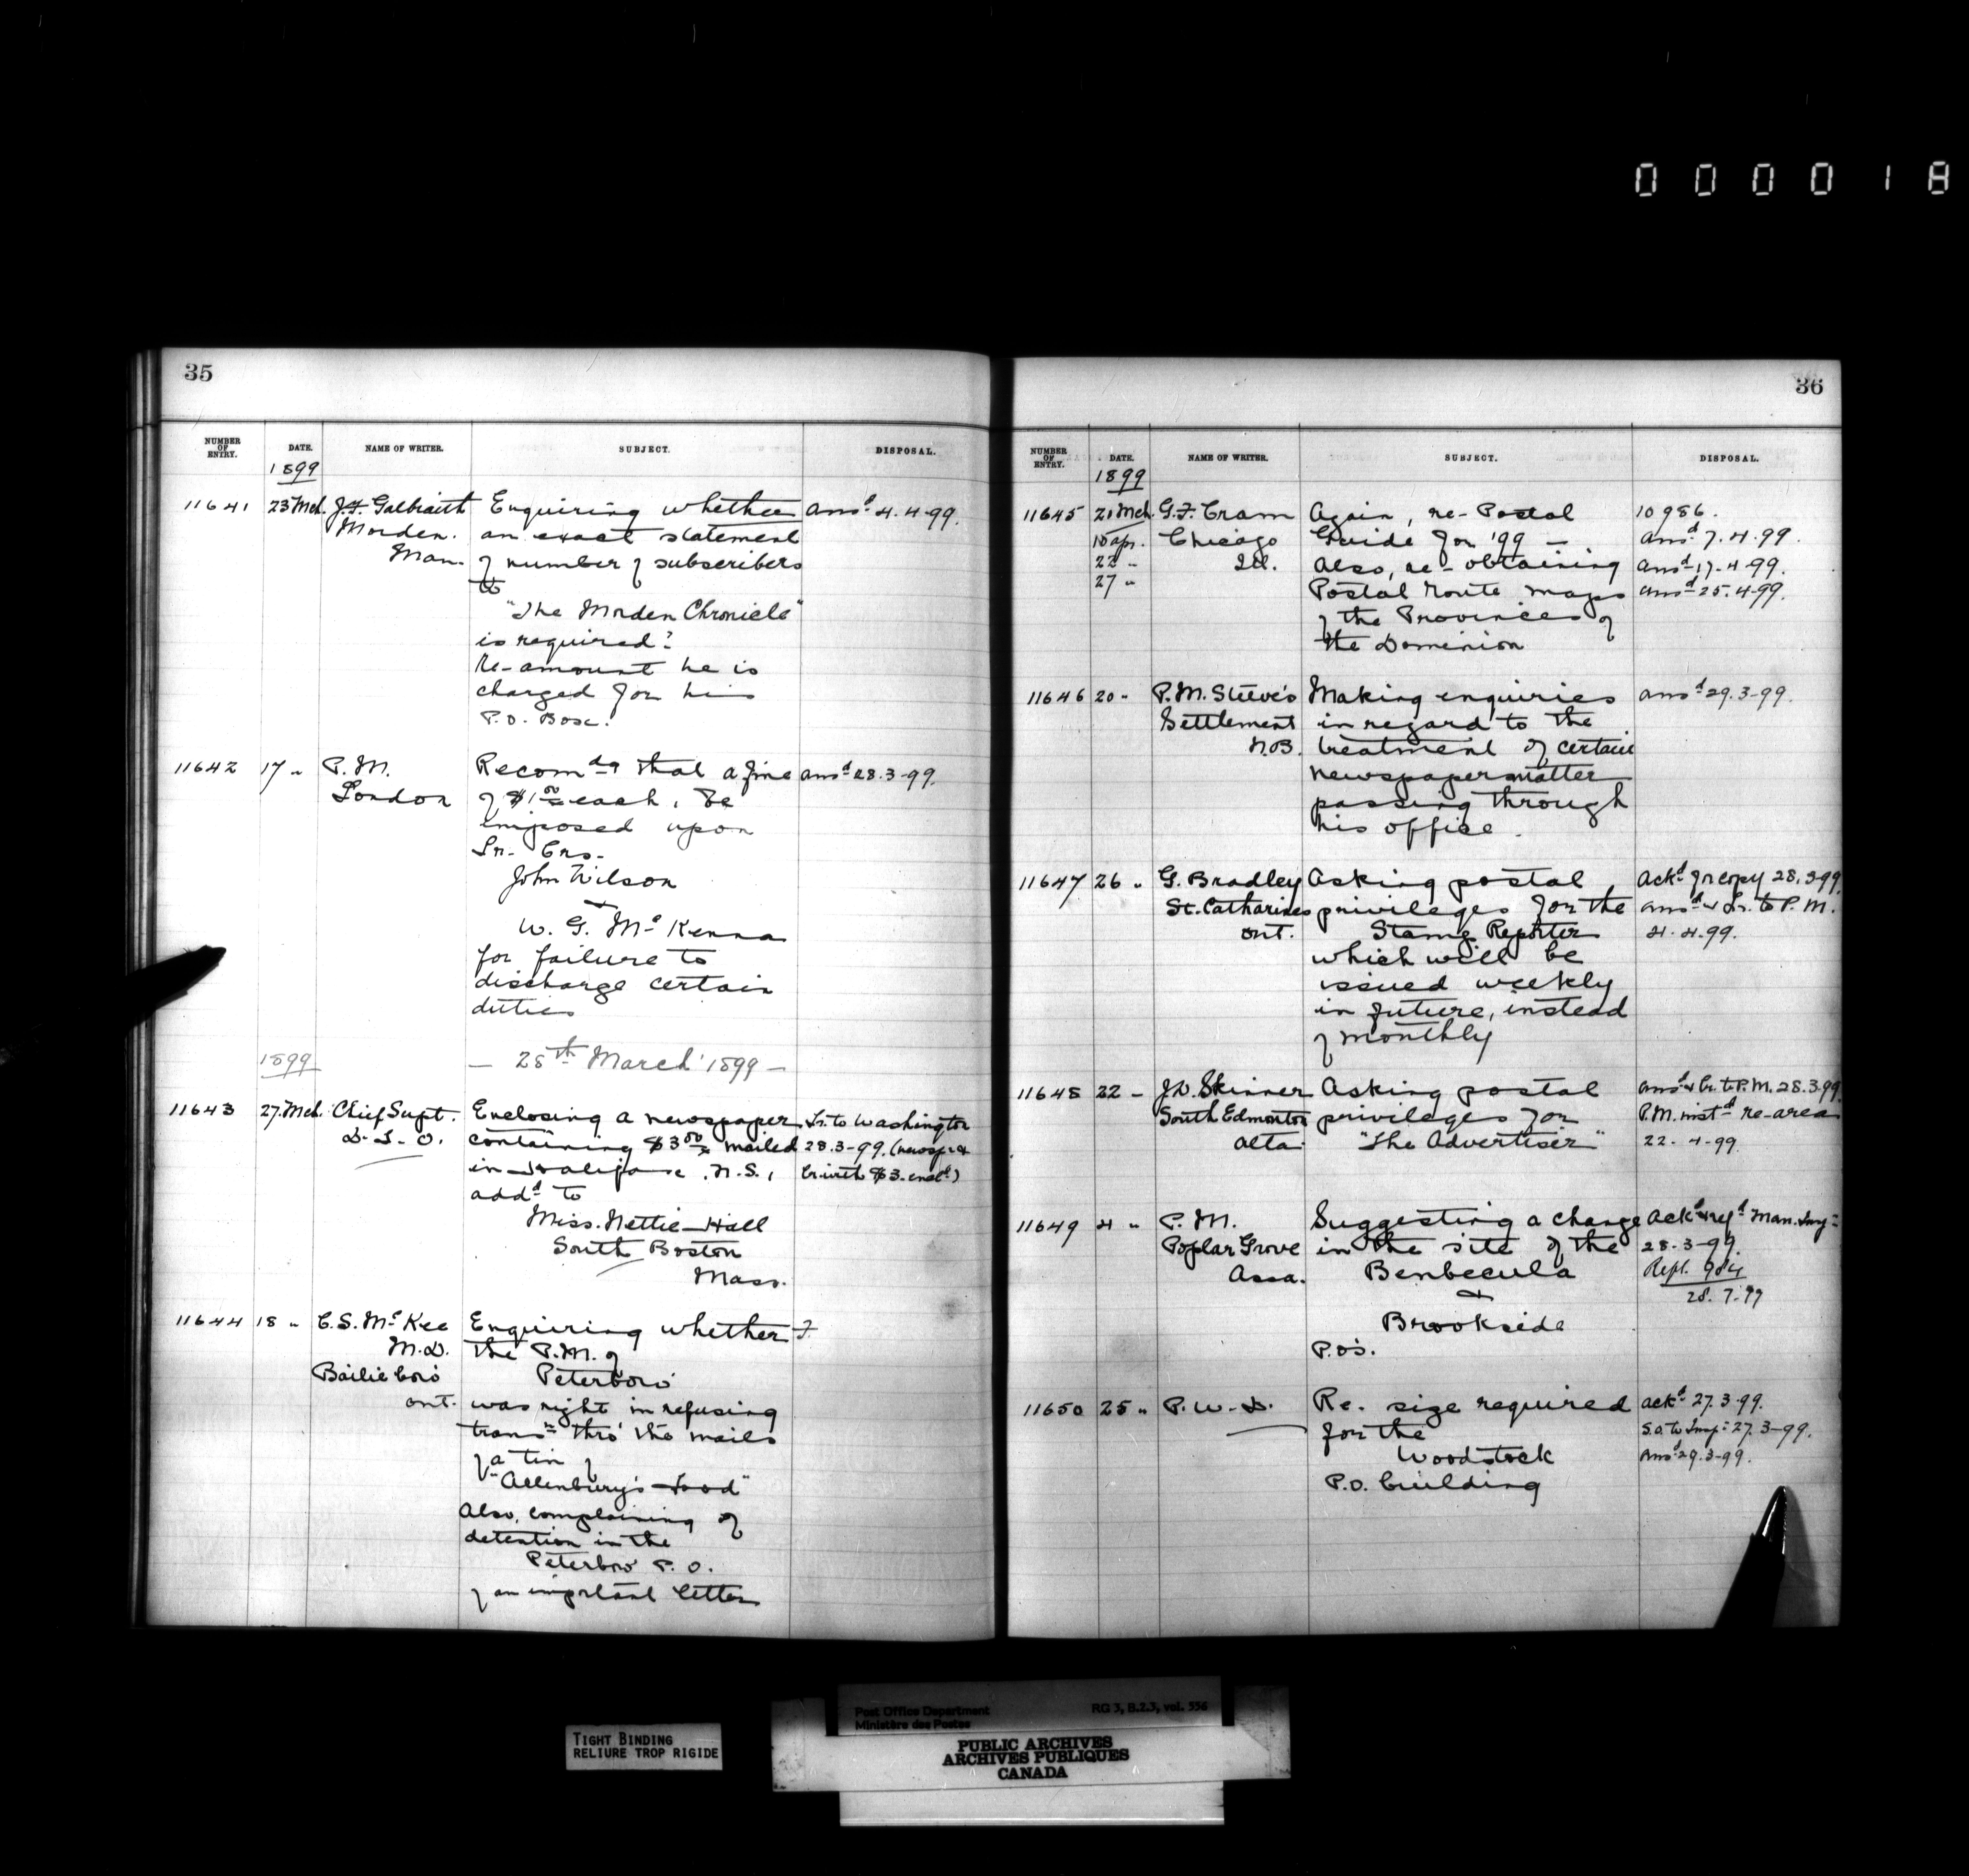 000018
35
NUMBER OF ENTRY. DATE. NAME OF WRITER. SUBJECT. DISPOSAL.
1899
11641 23 Mch. J.F. Galbraith Enquiring whether ansd 4.4.99.
Morden. an exact statement
Man. of number of subscribers
to
"The Morden Chronicle"
is required?
Re-amount he is
charged for his
P.O. Box.
11642 17 " P.M. Recomdg that a fine ansd 28.3-99.
London of $1.00 each, be
imposed upon
Lr. Crs.
John Wilson
&
W. G. McKenna
for failure to
discharge certain
duties
1899 — 28th March 1899 —
11643 27 Mch Chief Supt. Enclosing a newspaper Lr. to Washington
D.L.O. containing $3.00 mailed 28.3-99. (newspr &
in Halifax, N.S., Lr. with $3. encd)
addd to
Miss. Nettie Hall
South Boston
Mass.
11644 18 " C.S. McKee Enquiring whether F.
M.D. the P.M. of
Bailieboro' Peterboro'
Ont. was right in refusing
transn thro' the mails
of a tin of
"Allenbury's Food"
Also, complaining of
detention in the
Peterboro' P.O.
of an important letter
36
NUMBER OF ENTRY. DATE. NAME OF WRITER. SUBJECT. DISPOSAL.
1899
11645 21 Mch. G.F. Cram Again, re-Postal 10986.
15 apr. Chicago Guide for '99 — ansd 7.4.99.
22 " Ill. Also, re-obtaining ansd 17-4-99.
27 " Postal route maps ansd 25.4-99.
of the Provinces of
the Dominion
11646 20 " P.M. Steeve's Making enquiries ansd 29.3-99.
Settlement in regard to the
N.B. treatment of certain
newspaper matter
passing through
his office.
11647 26 " G. Bradley Asking postal Ackd for copy 28.3-99.
St. Catharines privileges for the ansd & Lr. to P.M.
Ont. Stamp Reporter 4.4.99.
which will be
issued weekly
in future, instead
of monthly
11648 22 " J.D. Skinner Asking postal ansd & Lr. to P.M. 28.3.99
South Edmonton privileges for P.M. instd re-area
Alta. "The Advertiser" 22-4-99.
11649 4 " P.M. Suggesting a change Ackd & refd Man. Insp
Poplar Grove in the site of the 28-3-99.
Assa. Benbecula Rept.
& 28.7.99
Brookside
P.O's.
11650 25 " P.W.D. Re. size required ackd 27.3.99.
for the S.O. to Insp 27.3-99.
Woodstock ansd 29.3-99.
P.O. building
TIGHT BINDING
RELIURE TROP RIGIDE
Post Office Department RG 3, B.2.3, vol. 556
Ministère des Postes
PUBLIC ARCHIVES
ARCHIVES PUBLIQUES
CANADA